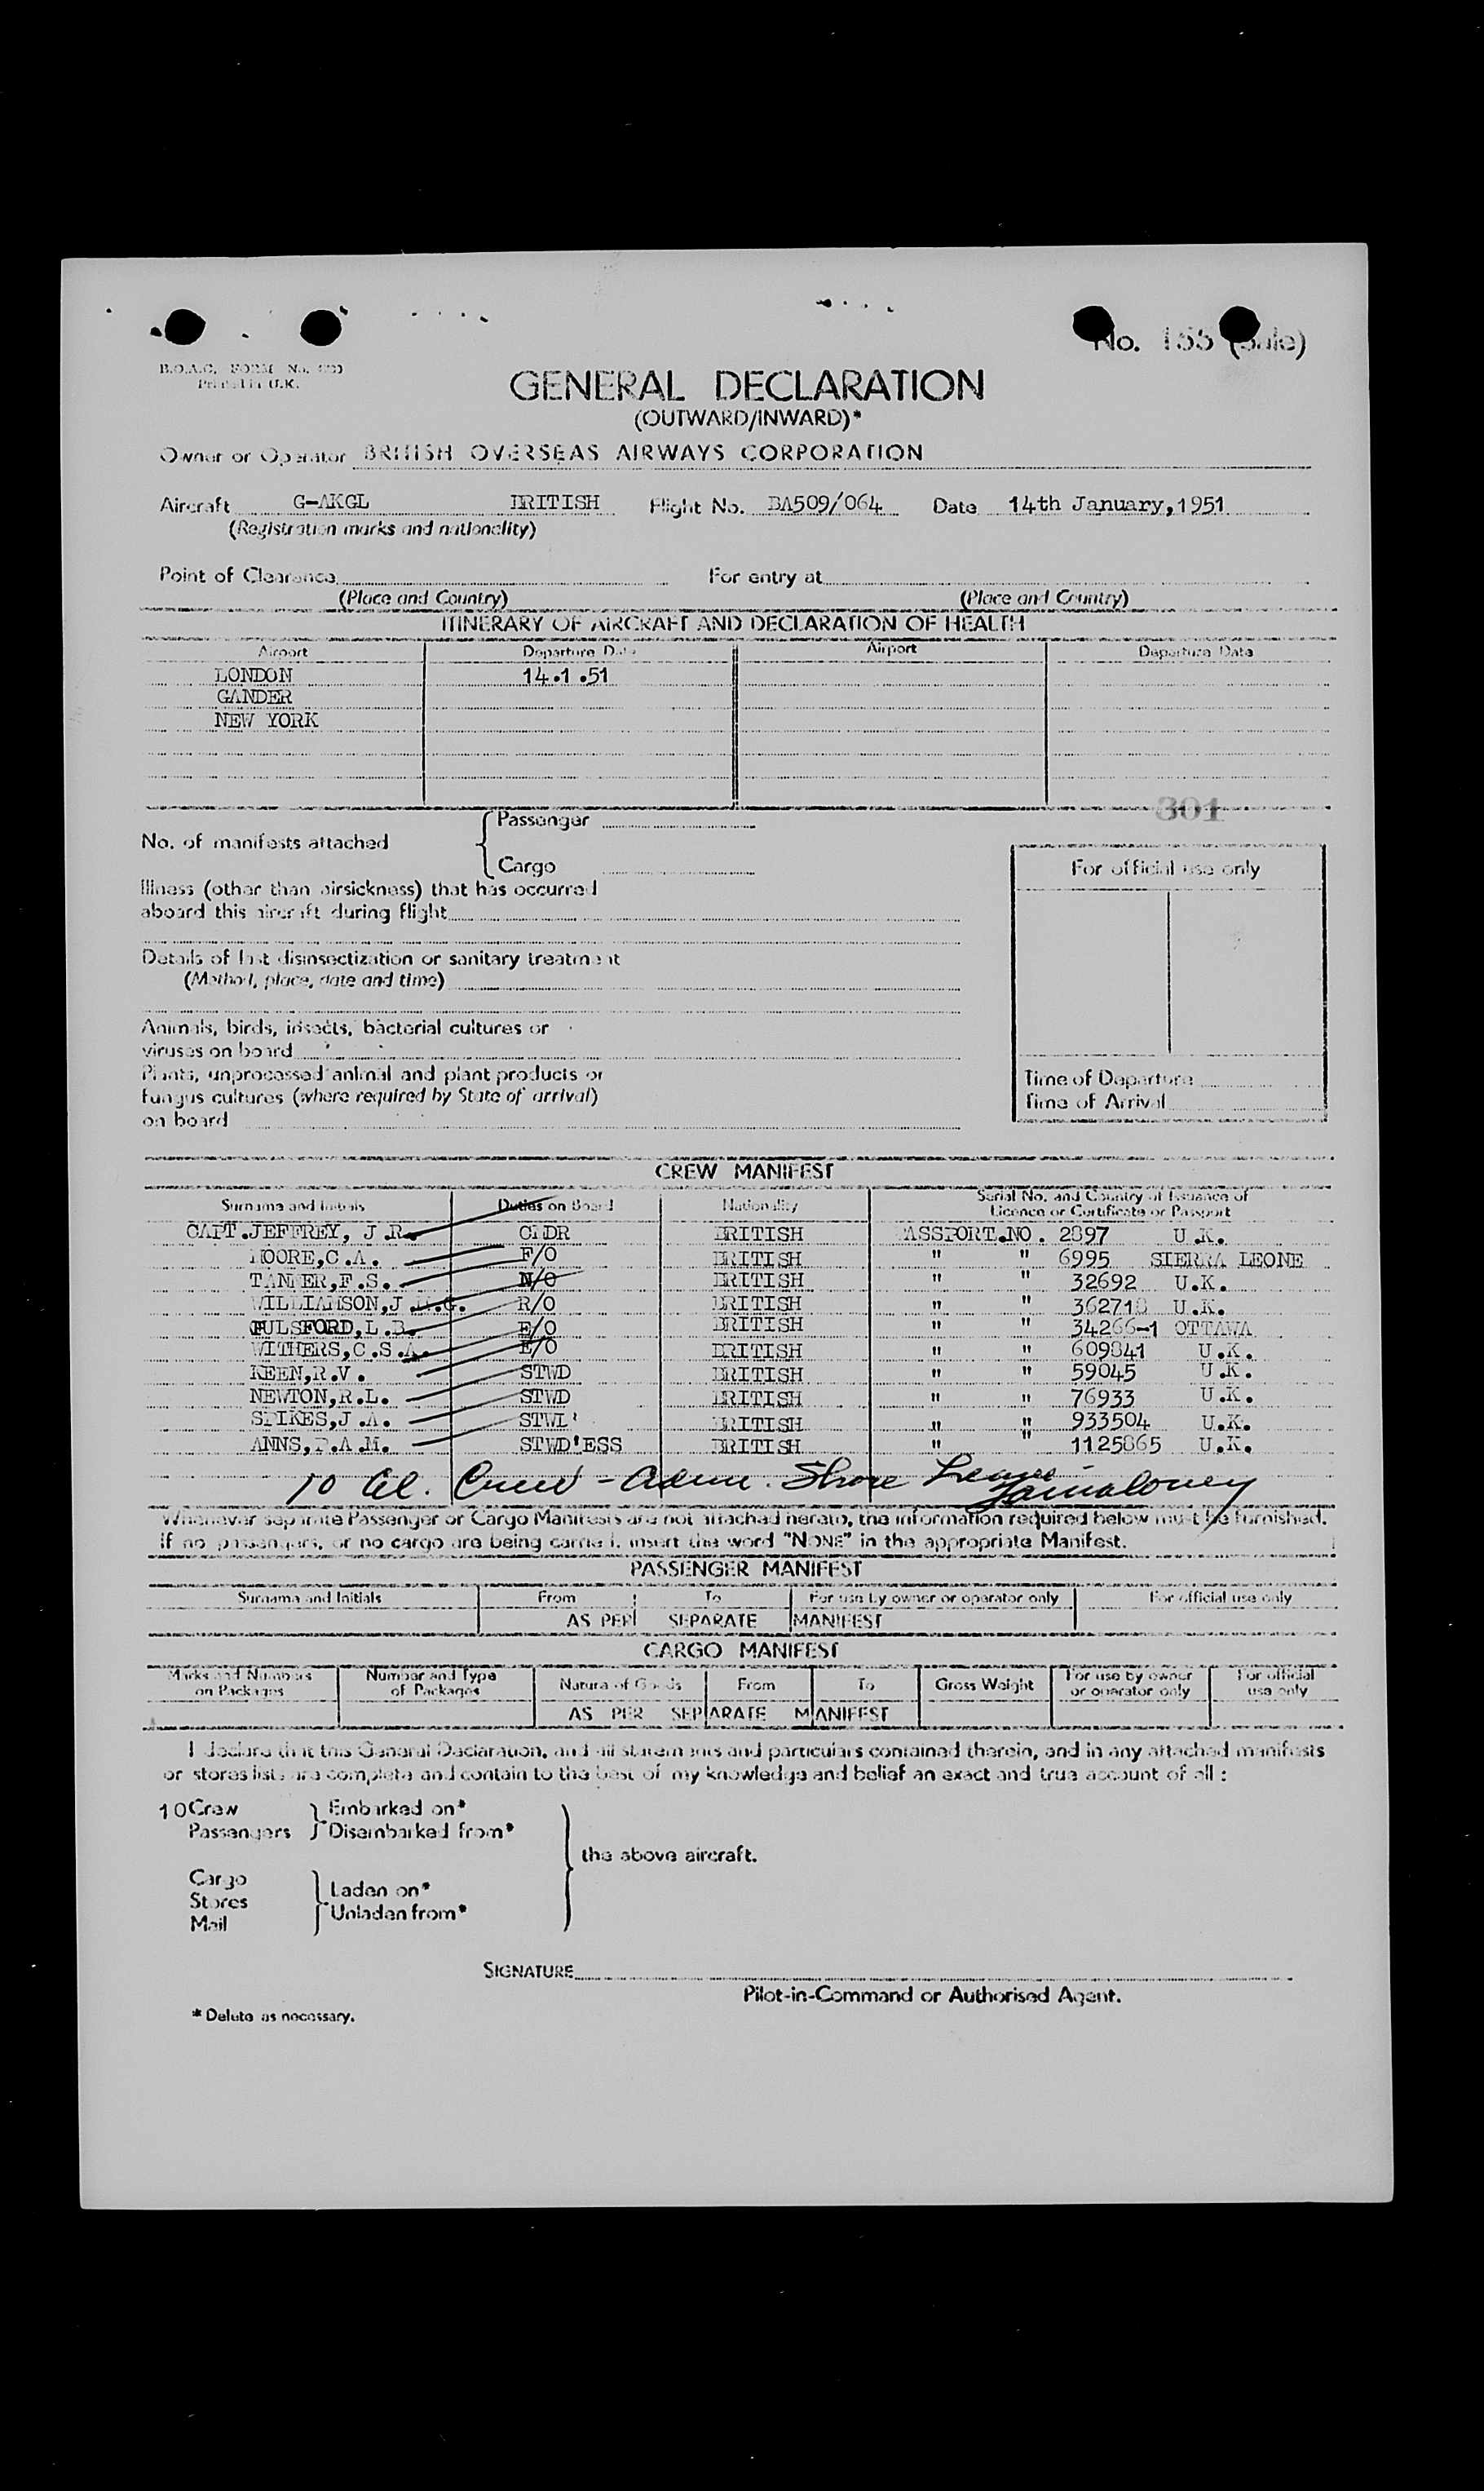 No. 155 (Sale)
B.O.A.C. FORM No.
Printed in U.K.
GENERAL DECLARATION
(OUTWARD/INWARD)*
Owner or Operator BRITISH OVERSEAS AIRWAYS CORPORATION
Aircraft G-AKGL BRITISH Flight No. BA509/064 Date 14th January,1951
(Registration marks and nationality)
Point of Clearance For entry at
(Place and Country) (Place and Country)
ITINERARY OF AIRCRAFT AND DECLARATION OF HEALTH
Airport Departure Date Airport Departure Date
LONDON 14.1.51
GANDER
NEW YORK
301
No. of manifests attached { Passenger
Cargo
For official use only
Illness (other than airsickness) that has occurred
aboard this aircraft during flight
Details of last disinsectization or sanitary treatment
(Method, place, date and time)
Animals, birds, insects, bacterial cultures or
viruses on board
Plants, unprocessed animal and plant products or
fungus cultures (where required by State of arrival)
on board
Time of Departure
Time of Arrival
CREW MANIFEST
Surname and Initials Duties on Board Nationality Serial No. and Country of Issuance of
Licence or Certificate or Passport
CAPT.JEFFREY, J.R. CMDR BRITISH PASSPORT.NO. 2897 U.K.
MOORE,C.A. F/O BRITISH " " 6995 SIERRA LEONE
TANNER,F.S. N/O BRITISH " " 32692 U.K.
WILLIAMSON,J.M.G. R/O BRITISH " " 362718 U.K.
PULSFORD,L.B. E/O BRITISH " " 34266-1 OTTAWA
WITHERS,C.S.A. E/O BRITISH " " 609841 U.K.
KEEN,R.V. STWD BRITISH " " 59045 U.K.
NEWTON,R.L. STWD BRITISH " " 76933 U.K.
SPIKES,J.A. STWD BRITISH " " 933504 U.K.
ANNS,P.A.M. STWD'ESS BRITISH " " 1125865 U.K.
10 al. Crew - Adm. Shore Leave
Whenever separate Passenger or Cargo Manifests are not attached hereto, the information required below must be furnished.
If no passengers, or no cargo are being carried, insert the word "NONE" in the appropriate Manifest.
PASSENGER MANIFEST
Surname and Initials From To For use by owner or operator only For official use only
AS PER SEPARATE MANIFEST
CARGO MANIFEST
Marks and Numbers on Packages Number and Type of Packages Nature of Goods From To Gross Weight For use by owner or operator only For official use only
AS PER SEPARATE MANIFEST
I declare that this General Declaration, and all statements and particulars contained therein, and in any attached manifests
or stores lists are complete and contain to the best of my knowledge and belief an exact and true account of all :
10 Crew } Embarked on*
Passengers } Disembarked from*
the above aircraft.
Cargo
Stores } Laden on*
Mail } Unladen from*
SIGNATURE
Pilot-in-Command or Authorised Agent.
* Delete as necessary.